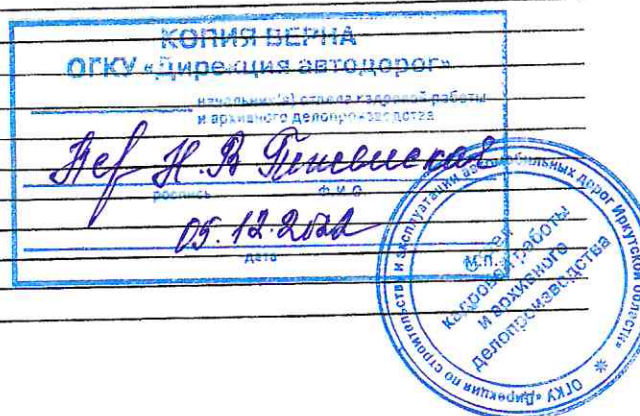 КОПИЯ ВЕРНА
ОГКУ «Дирекция автодорог»
начальник(а) отдела кадровой работы
и архивного делопроизводства
Н. В.
роспись Ф.И.О.
05.12.2022
дата
М.П.
ОГКУ «Дирекция по строительству и эксплуатации автомобильных дорог Иркутской области»
Отдел
кадровой работы
и архивного
делопроизводства